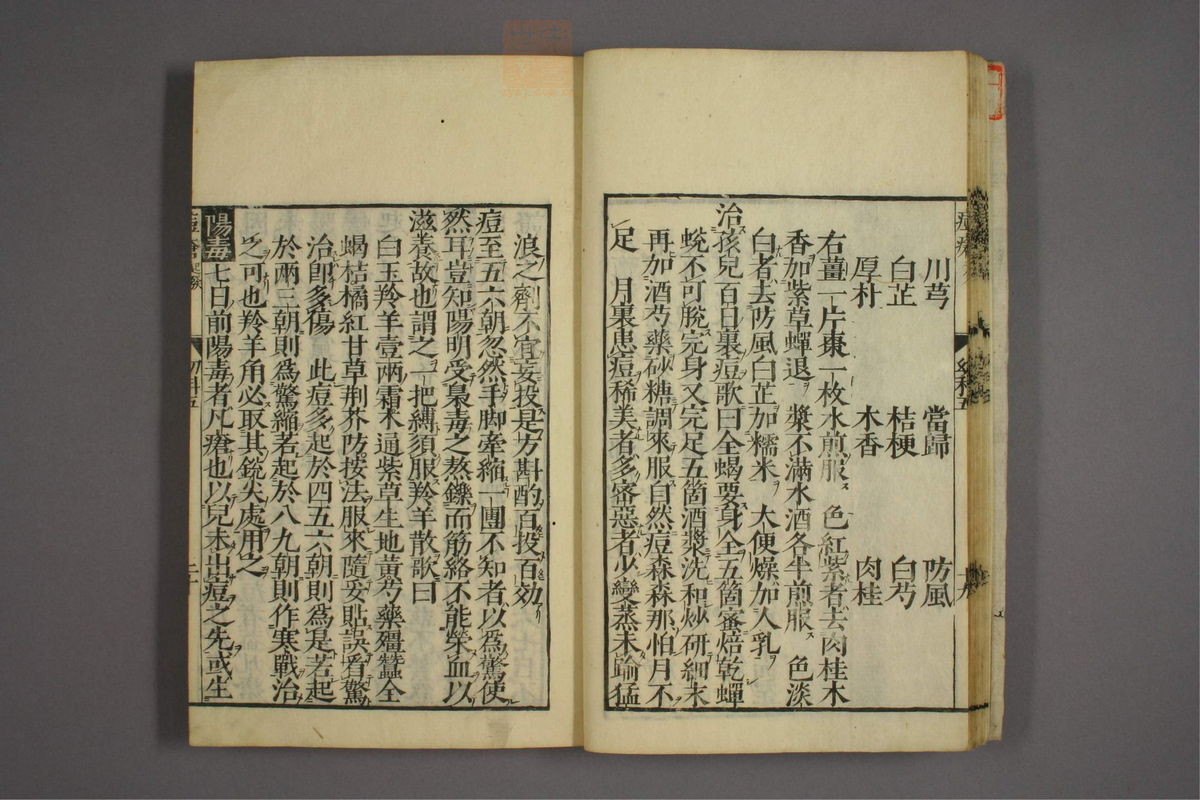 川芎　當歸　防風
白芷　桔梗　白芍
厚朴　木香　肉桂
右薑一片棗一枚水煎服　色紅紫者去肉桂木
香加紫草蟬退　漿不滿水酒各半煎服　色淡
白者去防風白芷加糯米　大便燥加人乳
治孩兒百日裏痘歌曰全蝎要身全五箇蜜焙乾蟬
蛻不可脫完身又完足五箇酒漿洗和炒研細末
再加酒芍藥砂糖調來服自然痘森森那怕月不
足　月裏患痘稀美者多審惡者少變蒸未踰猛
浪之劑不宜妄投是方斟酌百投百効
痘至五六朝忽然手脚牽縮一團不知者以爲驚使
然耳豈知陽明受梟毒之熬鑠而筋絡不能榮血以
滋養故也謂之一把縛須服羚羊散歌曰
白玉羚羊壹兩霜木通紫草生地黃芍藥殭蠶全
蝎桔橘紅甘草荆芥防按法服來隨妥貼誤看驚
治卽多傷　此痘多起於四五六朝則爲是若起
於兩三朝則爲驚縮若起於八九朝則作寒戰治
之可也羚羊角必取其銳尖處用之
陽毒七日前陽毒者凡瘡也以兒未出痘之先或生